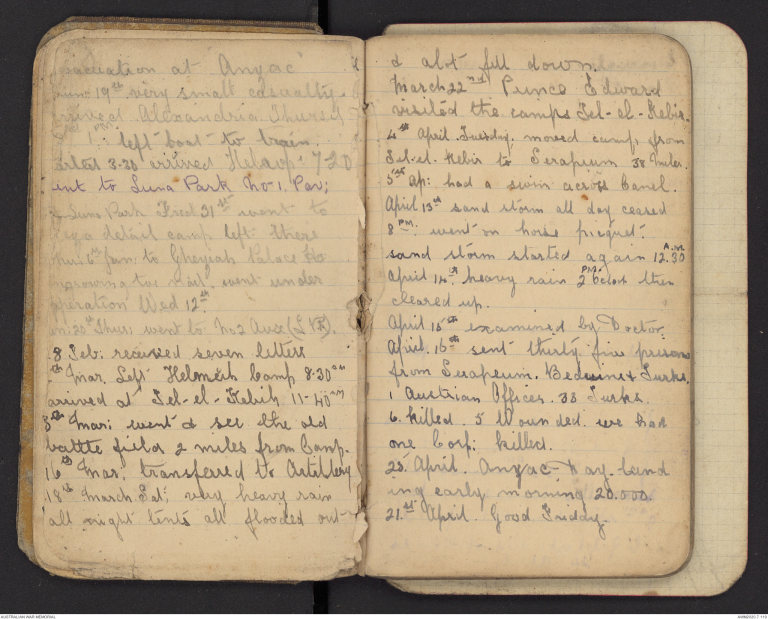 evacuation at "Anzac"
19th very small casualty.
arrived Alexandria Thursd
1 PM: left boat to train.
3-30 arrived Helaop: 7-20
ent to Luna Park No 1. Pav;
Luna Park Fred 31st went to
detail camp left there
6th Jan: to Gheyeah Palace Ho
went under
operation Wed 12th
20th Thur: went to No 2 Aux (L
8 Feb: received seven letters
th Mar. Left Helmieh Camp 8-30 am
arrived at Tel-el-Kebih 11-40 am
5th Mar: went & see the old
battle field 2 miles from Camp.
16th Mar, transferred to Artillery
18th March Sat; very heavy rain
all night tents all flooded out
& alot fell down.
March 22nd Prince Edward
visited the camps Tel-el-Kebir.
4th April. Tuesday. moved camp, from
Tel-el-Kebir to Serapeum 38 miles.
5th Ap: had a swim across Canel.
April 13th sand storm all day ceased
8 PM: went on horse picquet.
sand storm started again 12.30 A.M.
April 14th heavy rain 2 PM. oclock then
cleared up.
April 15th examined by Doctor.
April. 16th sent thirty five prison
from Serapeum. Beduins & Turks.
1 Austrian Officer. 33 Turks.
6. killed. 5 Wounded. we had
one Corp; killed.
25 April. Anzac Day. Land
ing early morning 20.000.
21st April. Good Friday.
AUSTRALIAN WAR MEMORIAL